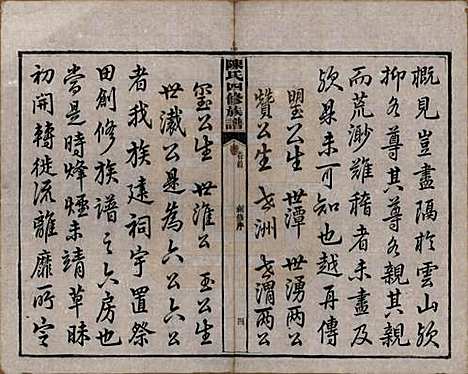 概見豈盡隔於雲山欤
抑各尊其尊各親其親
而荒渺難稽者未盡及
欤是未可知也越再傳
璺公生 世潭 世湧兩公
贊公生 世洲 世渭兩公
陳氏四修族譜
卷首
四
璽公生 世淮公 玉公生
世瀛公是為六公六公
者我族建祠宇置祭
田創修族譜之六房也
當是時烽煙未靖草昧
初開轉徙流離靡所定